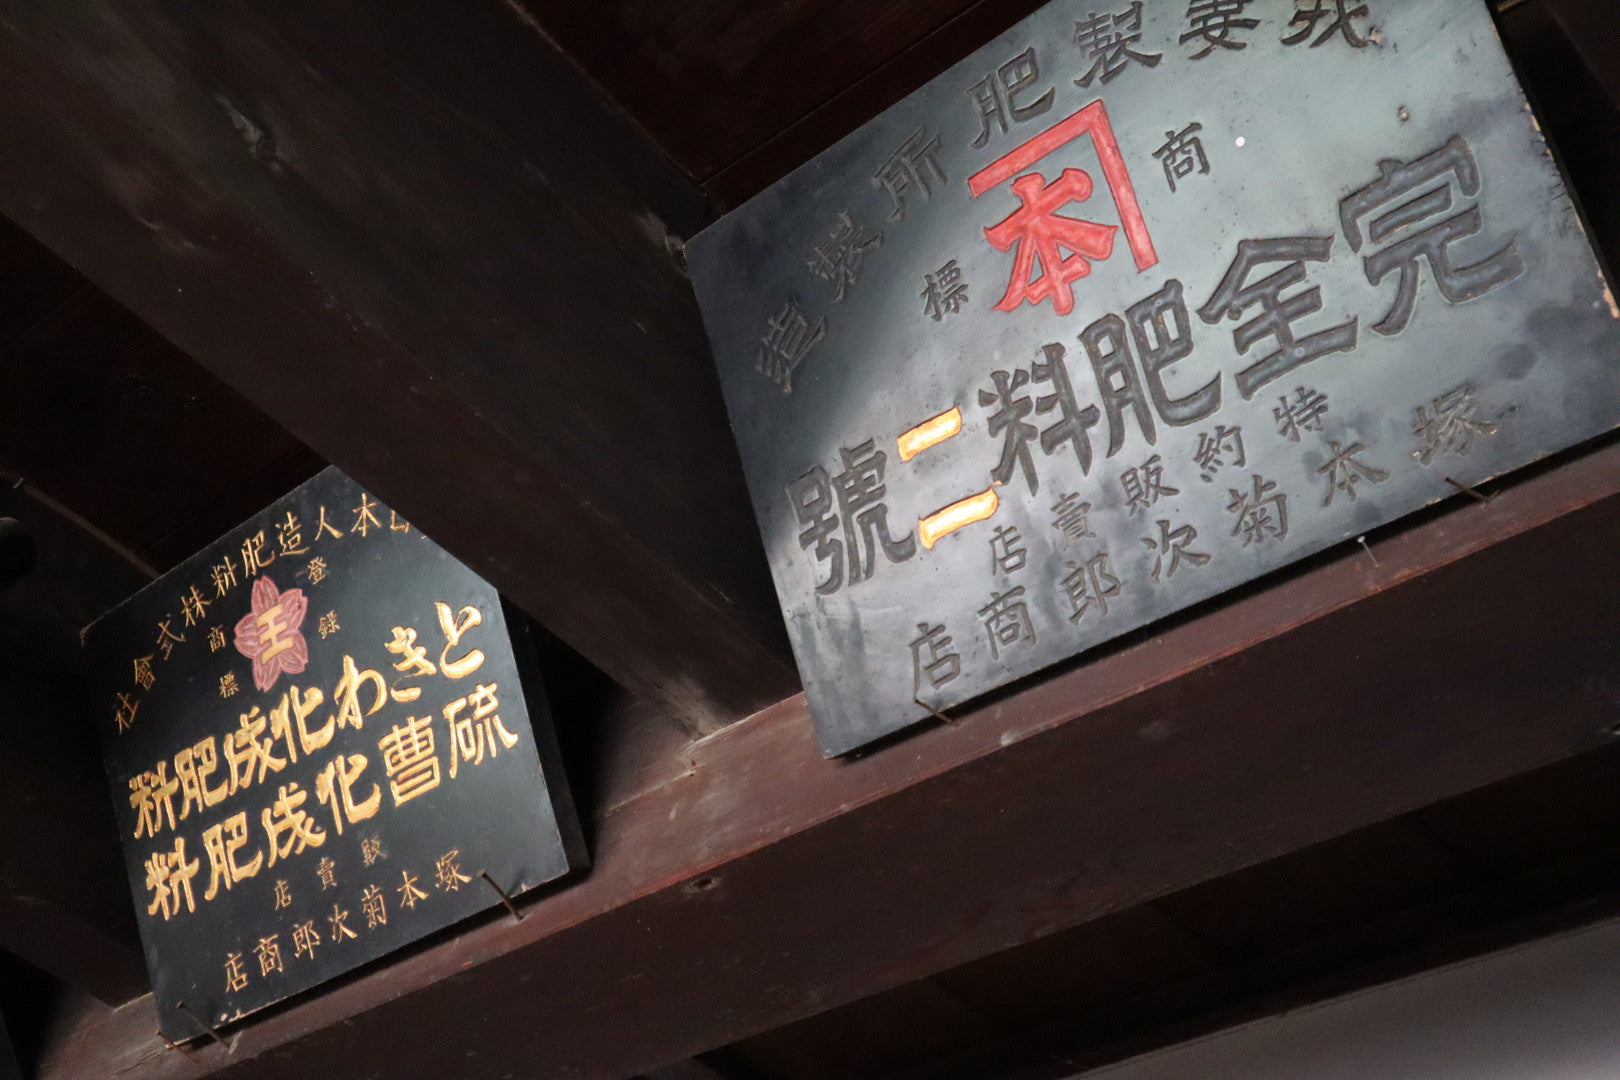 我妻製肥所製造
商標
本
完全肥料二號
特約販賣店
塚本菊次郎商店
本人造肥料株式會社
登録商標
王
ときわ化成肥料
硫曹化成肥料
販賣店
塚本菊次郎商店